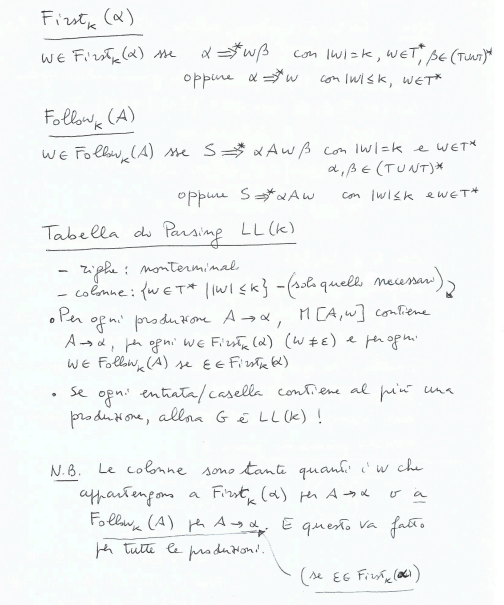 First_k (α)
w ∈ First_k(α) sse α ⇒* wβ con |w|=k, w∈T*, β∈(T∪NT)*
oppure α ⇒* w con |w|≤k, w∈T*
Follow_k (A)
w ∈ Follow_k(A) sse S ⇒* αAwβ con |w|=k e w∈T*
α,β∈(T∪NT)*
oppure S ⇒* αAw con |w|≤k e w∈T*
Tabella di Parsing LL(k)
- righe: nonterminali
- colonne: {w∈T* | |w|≤k} - (solo quelle necessarie)
• Per ogni produzione A→α, M[A,w] contiene
A→α, per ogni w∈First_k(α) (w≠ε) e per ogni
w∈Follow_k(A) se ε∈First_k(α)
• Se ogni entrata/casella contiene al più una
produzione, allora G è LL(k) !
N.B. Le colonne sono tante quanti i w che
appartengono a First_k(α) per A→α o a
Follow_k(A) per A→α. E questo va fatto
per tutte le produzioni.
(se ε∈First_k(α))